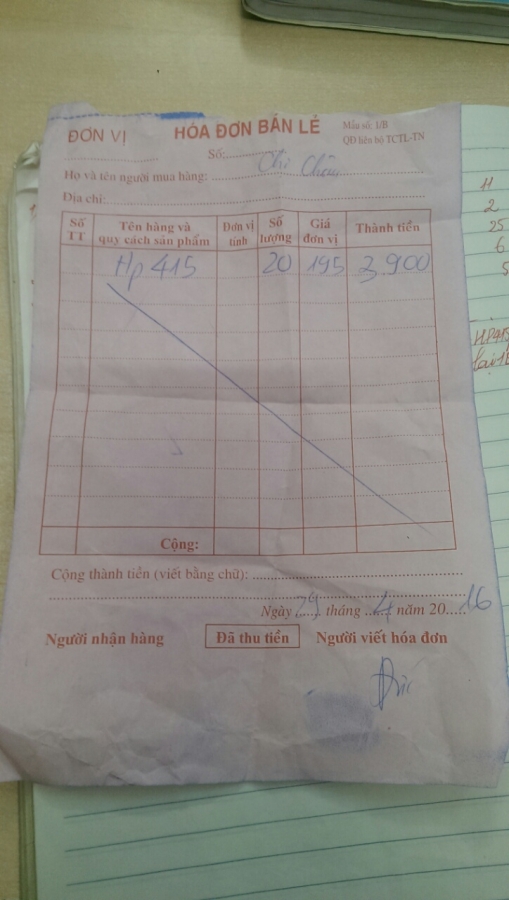 ĐƠN VỊ
HÓA ĐƠN BÁN LẺ
Mẫu số: 1/B
QĐ liên bộ TCTL-TN
Số:
Họ và tên người mua hàng: Chị Châu
Địa chỉ:
Số TT
Tên hàng và quy cách sản phẩm
Đơn vị tính
Số lượng
Giá đơn vị
Thành tiền
Hp 415 20 195 3.900
Cộng:
Cộng thành tiền (viết bằng chữ):
Ngày 29 tháng 4 năm 2016
Người nhận hàng
Đã thu tiền
Người viết hóa đơn
11
2
25
6
5